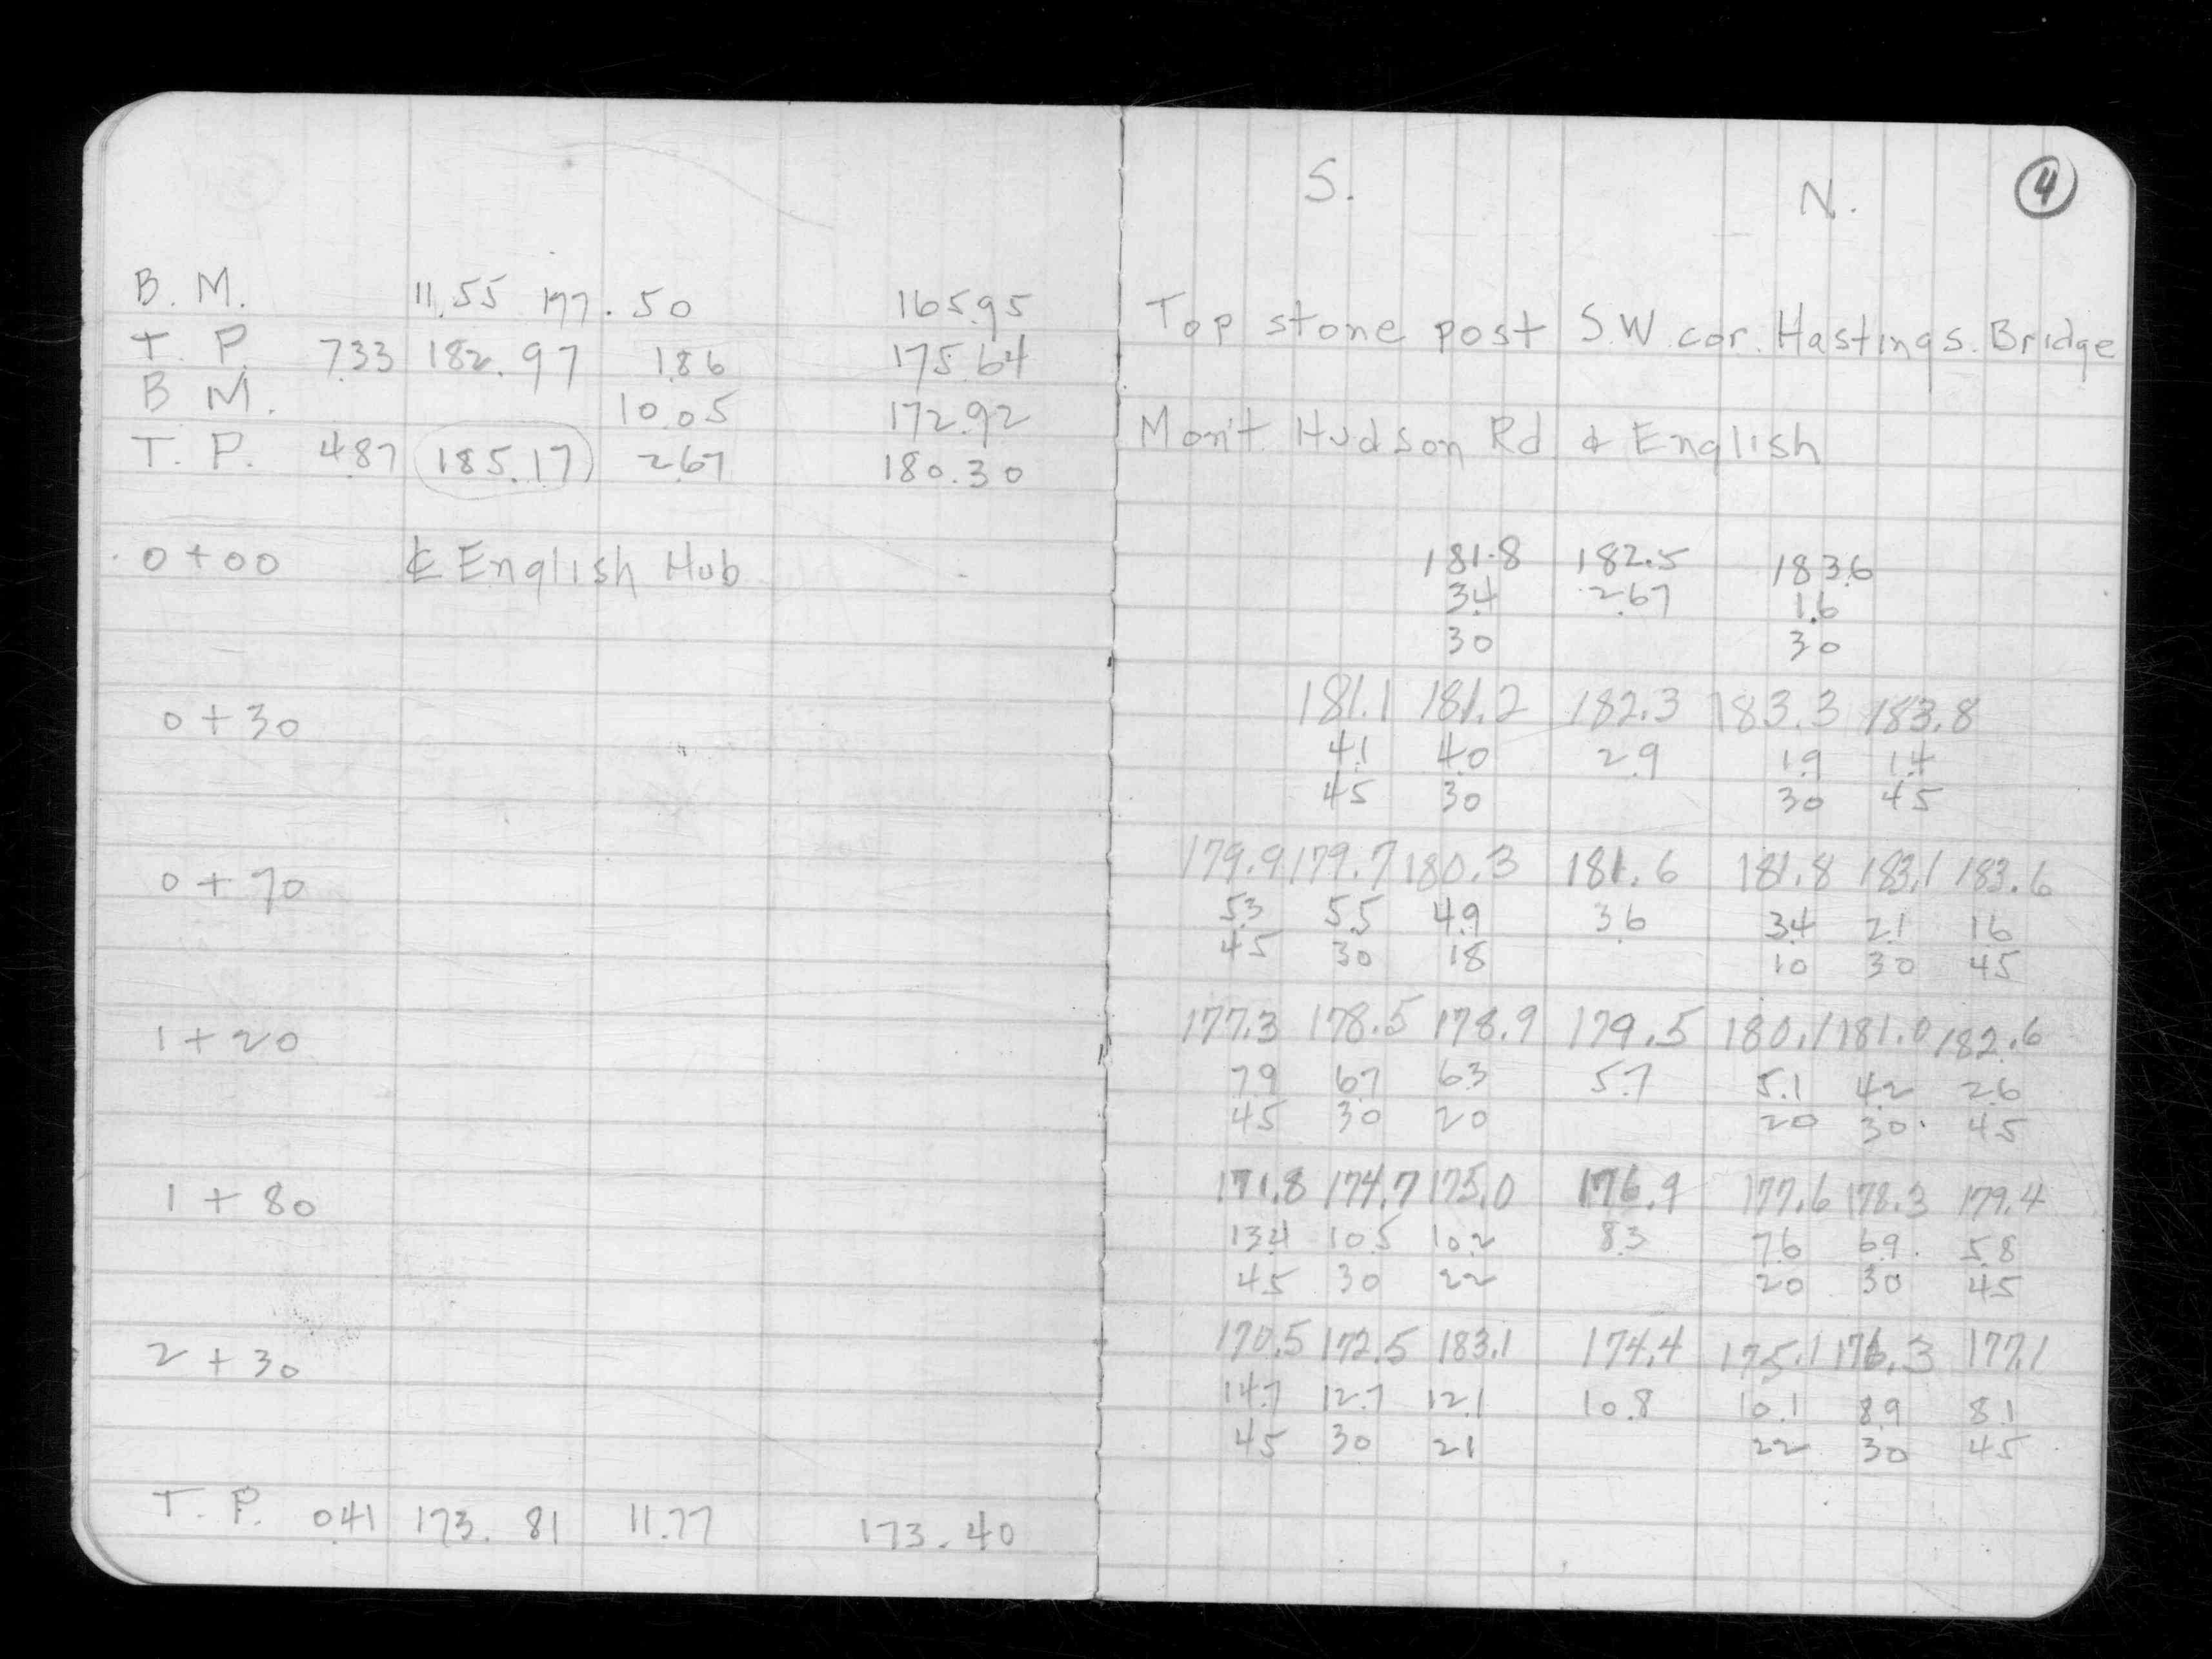 S. N. 4
B. M. 11.55 177.50 165.95 Top stone post S.W. cor. Hastings. Bridge
T. P. 7.33 182.97 1.86 175.64
B. M. 10.05 172.92 Mon't. Hudson Rd. & English
T. P. 4.87 185.17 2.67 180.30
0+00 ⅊ English Hub 181.8 182.5 183.6
3.4 2.67 1.6
30 30
0+30 181.1 181.2 182.3 183.3 183.8
4.1 4.0 2.9 1.9 1.4
45 30 30 45
0+70 179.9 179.7 180.3 181.6 181.8 183.1 183.6
5.3 5.5 4.9 3.6 3.4 2.1 1.6
45 30 18 10 30 45
1+20 177.3 178.5 178.9 179.5 180.1 181.0 182.6
7.9 6.7 6.3 5.7 5.1 4.2 2.6
45 30 20 20 30 45
1+80 171.8 174.7 175.0 176.9 177.6 178.3 179.4
13.4 10.5 10.2 8.3 7.6 6.9 5.8
45 30 22 20 30 45
2+30 170.5 172.5 183.1 174.4 175.1 176.3 177.1
14.7 12.7 12.1 10.8 10.1 8.9 8.1
45 30 21 22 30 45
T. P. 0.41 173.81 11.77 173.40